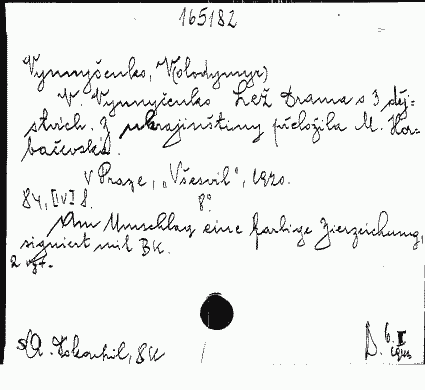 165182
Vynnyčenko, Volodymyr)
V. Vynnyčenko Lež Drama o 3 děj-
stvích. Z ukrajinštiny přeložila M. Hor-
bačevská.
V Praze, „Všesvit", 1920.
84, [IV] S. 8°
Am Umschlag eine farbige Zierzeichnung,
signiert mit BK.